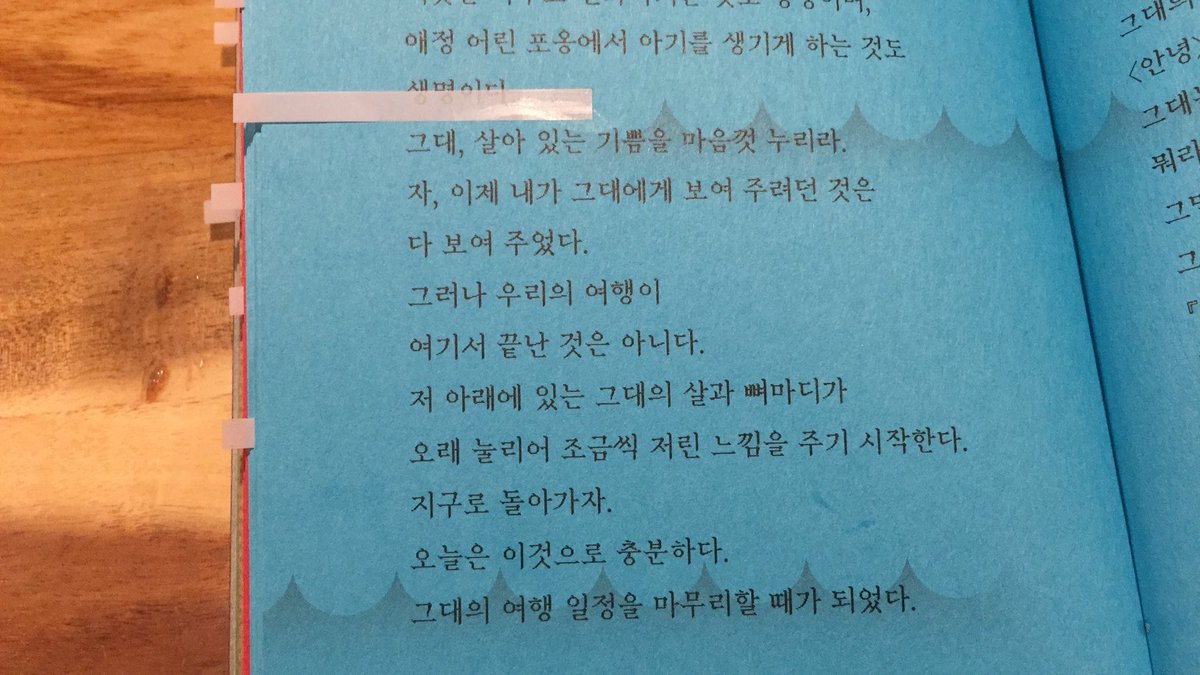 애정 어린 포옹에서 아기를 생기게 하는 것도
생명이다
그대, 살아 있는 기쁨을 마음껏 누리라.
자, 이제 내가 그대에게 보여 주려던 것은
다 보여 주었다.
그러나 우리의 여행이
여기서 끝난 것은 아니다.
저 아래에 있는 그대의 살과 뼈마디가
오래 눌리어 조금씩 저린 느낌을 주기 시작한다.
지구로 돌아가자.
오늘은 이것으로 충분하다.
그대의 여행 일정을 마무리할 때가 되었다.
그대의
<안녕
뭐라